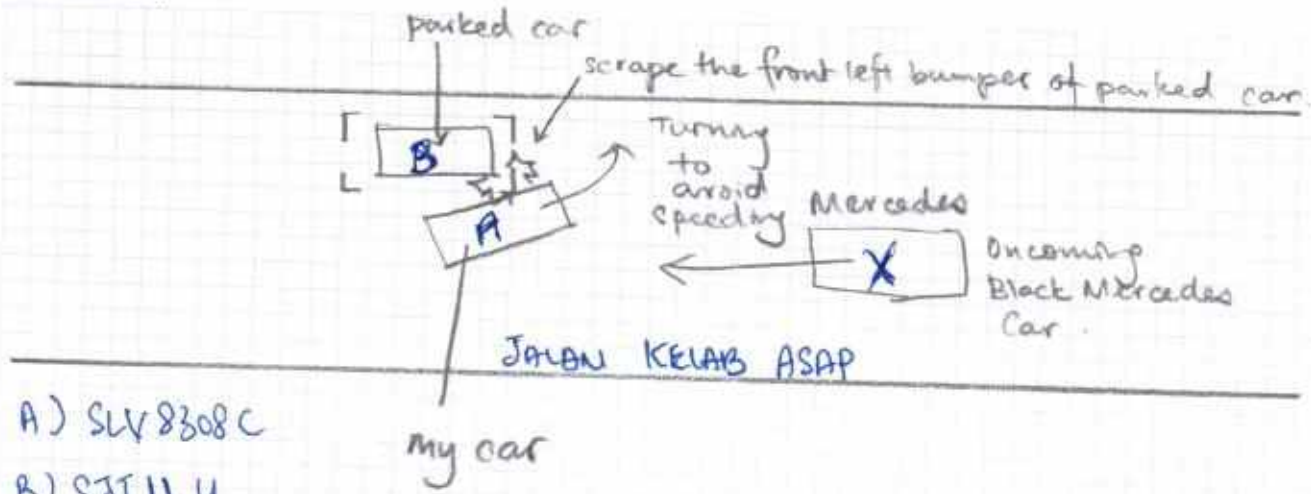 parked car
scrape the front left bumper of parked car.
B
Turning
to
avoid
speeding
Mercedes
A
X
Oncoming
Black Mercedes
Car.
JALAN KELAB ASAP
A) SLV8308C
my car
B)